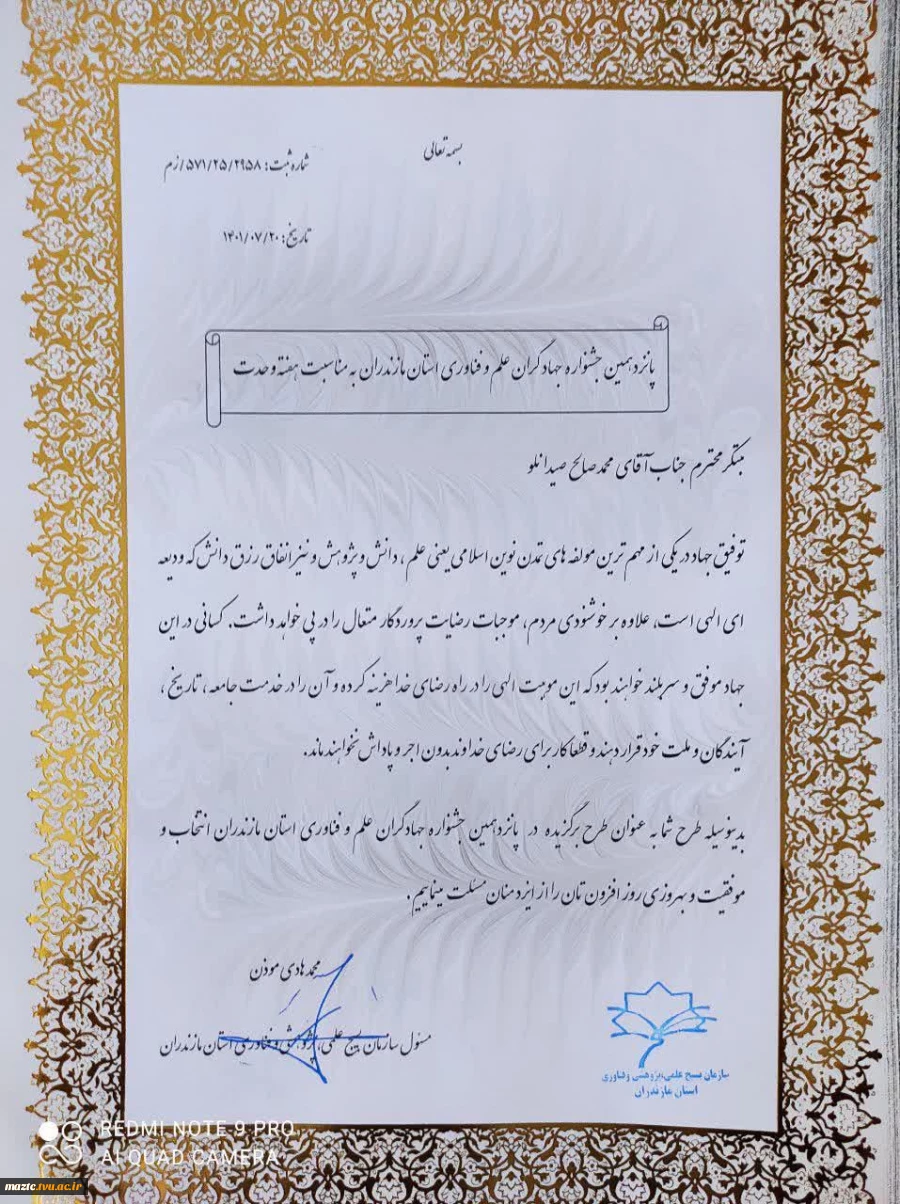 بسمه تعالی
شماره ثبت: ۵۷۱/۲۵/۲۹۵۸/زم
تاریخ: ۱۴۰۱/۰۷/۲۰
پانزدهمین جشنواره جهادگران علم و فناوری استان مازندران به مناسبت هفته وحدت
مبتکر محترم جناب آقای محمدصالح صیدانلو
توفیق جهاد در یکی از مهم ترین مولفه های تمدن نوین اسلامی یعنی علم، دانش و پژوهش و نیز انفاق رزق دانش که ودیعه
ای الهی است، علاوه بر خوشنودی مردم، موجبات رضایت پروردگار متعال را در پی خواهد داشت. کسانی در این
جهاد موفق و سربلند خواهند بود که این موهبت الهی را در راه رضای خدا هزینه کرده و آن را در خدمت جامعه، تاریخ،
آیندگان و ملت خود قرار دهند و قطعا کار برای رضای خداوند بدون اجر و پاداش نخواهند ماند.
بدینوسیله طرح شما به عنوان طرح برگزیده در پانزدهمین جشنواره جهادگران علم و فناوری استان مازندران انتخاب و
موفقیت و بهروزی روز افزون تان را از ایزد منان مسئلت مینماییم.
محمدهادی موذن
مسئول سازمان بسیج علمی، پژوهشی و فناوری استان مازندران
سازمان بسیج علمی،پژوهشی وفناوری
استان مازندران
REDMI NOTE 9 PRO
AI QUAD CAMERA
maztc.tvu.ac.ir